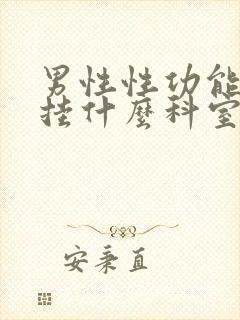 男性性功能
挂什麼科室
安秉直